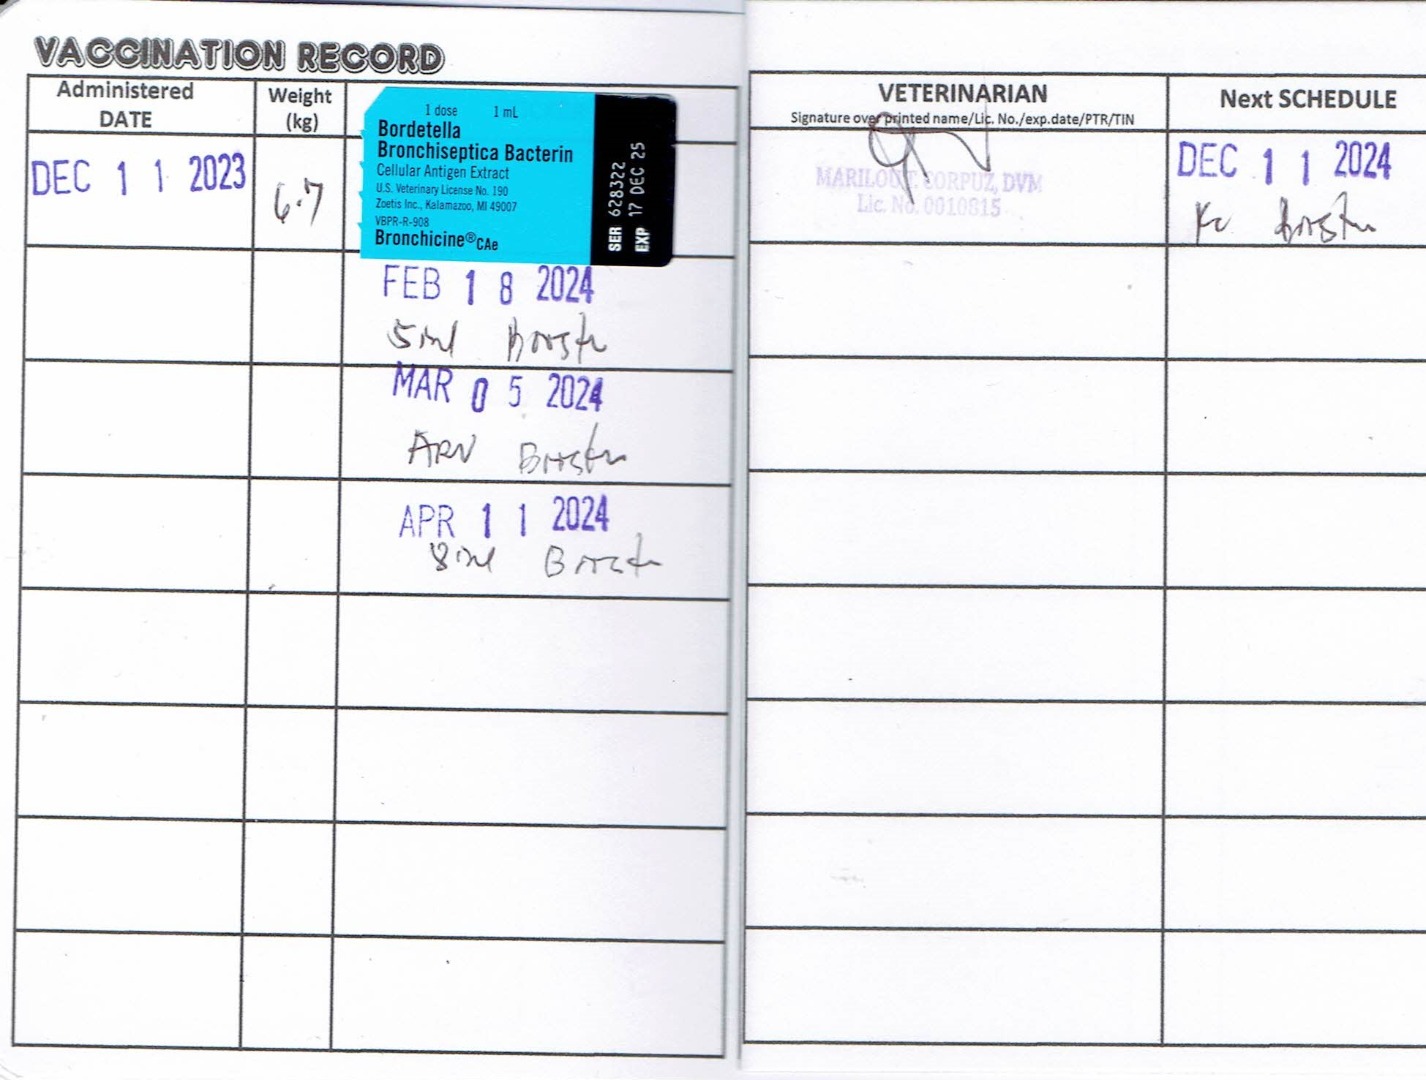 VACCINATION RECORD
Administered DATE
Weight (kg)
VETERINARIAN
Signature over printed name/Lic. No./exp.date/PTR/TIN
Next SCHEDULE
DEC 11 2023
6.7
1 dose 1 mL
Bordetella
Bronchiseptica Bacterin
Cellular Antigen Extract
U.S. Veterinary License No. 190
Zoetis Inc., Kalamazoo, MI 49007
VBPR-R-908
Bronchicine®CAe
SER 628322
EXP 17 DEC 25
MARILOU T. CORPUZ, DVM
Lic. No. 0010815
DEC 11 2024
KC Booster
FEB 18 2024
5in1 Booster
MAR 05 2024
ARV Booster
APR 11 2024
8in1 Booster